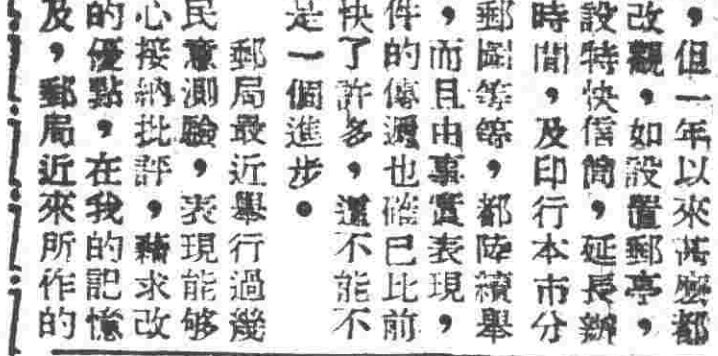 ，但一年以來甚麼都
改觀，如設置郵亭，
設特快信筒，延長辦
時間，及印行本市分
郵圖等等，都陸續舉
，而且由事實表現，
件的傳遞也確已比前
快了許多，還不能不
是一個進步。
郵局最近舉行過幾
民意測驗，表現能够
心接納批評，藉求改
的優點，在我的記憶
及，郵局近來所作的